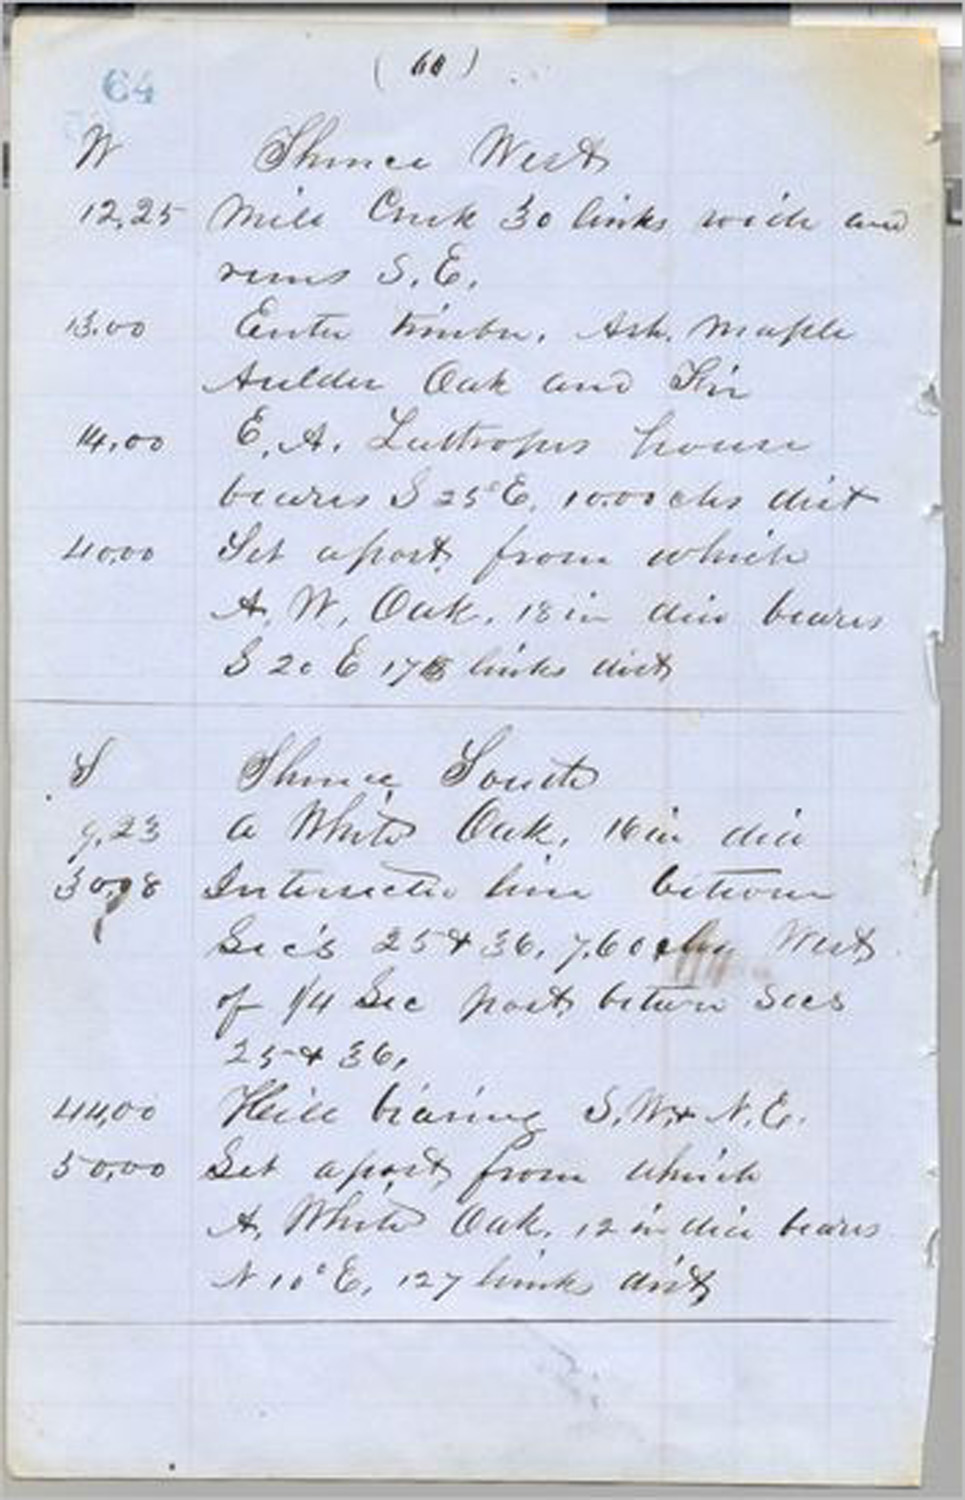 64
(60)
W Thence West
12,25 Mill Creek 30 links wide and
runs S.E.
13.00 Enter Timber. Ash, Maple
Aulder Oak and Fir
14,00 E. A. house
beares S 25° E, 10.00 chs dist
40,00 Set a post from which
A, W, Oak, 18 in dia beares
S 20 E links dist
S Thence South
9,23 a White Oak, 16 in dia
30,98 Intersected line between
Sec's 25 & 36, 7,60 West
of 1/4 Sec post between Secs
25 & 36,
44,00 Hill bearing S.W. & N.E.
50,00 Set a post from which
A, White Oak, 12 in dia beares
N 10° E, 127 links dist